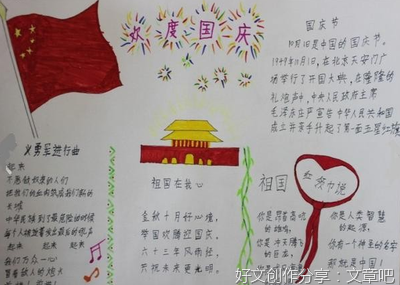 欢度国庆
国庆节
10月1日是中国的国庆节。
1949年10月1日,在北京天安门广
场举行了开国大典,在隆隆的
礼炮声中,中央人民政府主席
毛泽东庄严宣告中华人民共和国
成立并亲手升起了第一面五星红旗
义勇军进行曲
起来
不愿做奴隶的人们
把我们的血肉筑成我们新的
长城
中华民族到了最危险的时候
每个人被迫着发出最后的吼声
起来 起来 起来
我们万众一心
冒着敌人的炮火
祖国在我心
金秋十月好心境,
举国欢腾迎国庆,
六十三年风雨经,
开拓未来更光明。
祖国
红领巾
你是人类智慧
的起源,
你有一个神圣的名字
那就是中国!
好文创作分享：文章吧